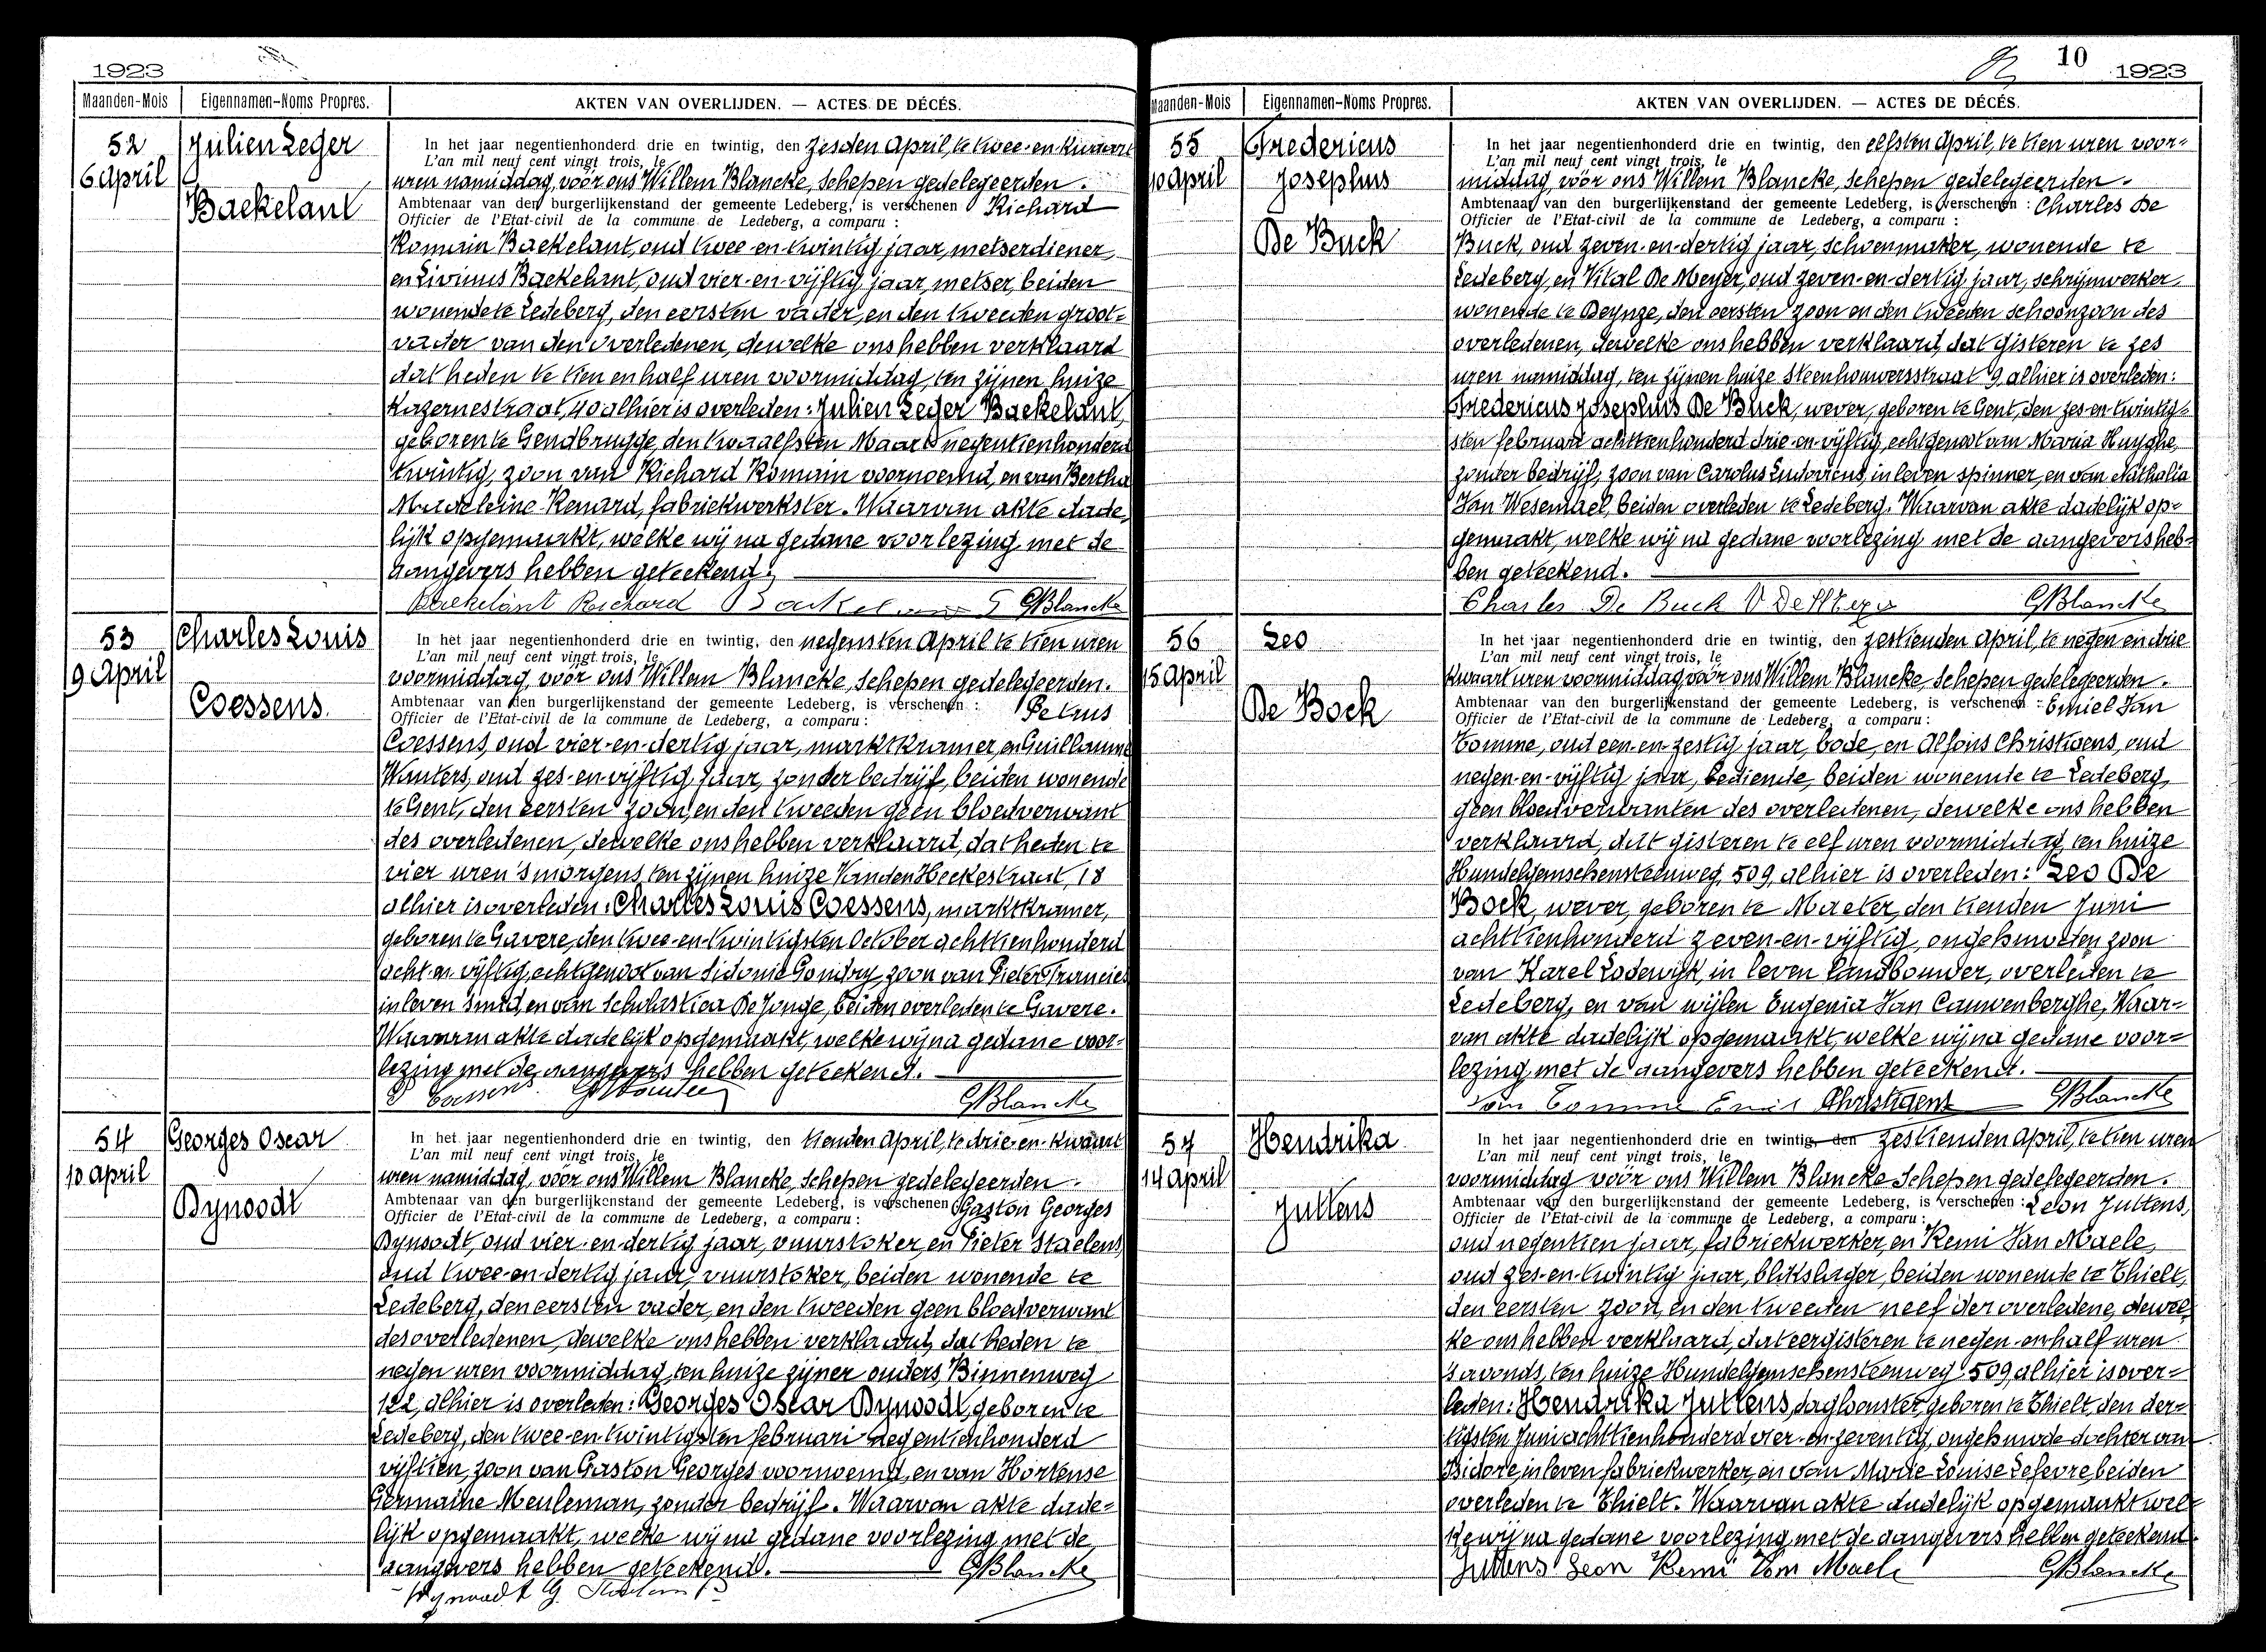 1923
Maanden-Mois Eigennamen-Noms Propres. AKTEN VAN OVERLIJDEN. — ACTES DE DÉCÉS.
52
6 April
Julien Leger
Baekelant
In het jaar negentienhonderd drie en twintig, den zesden April, te twee-en-kwaart
L'an mil neuf cent vingt trois, le
uren namiddag, vóór ons Willem Blancke, Schepen gedelegeerden.
Ambtenaar van den burgerlijkenstand der gemeente Ledeberg, is verschenen Richard
Officier de l'Etat-civil de la commune de Ledeberg, a comparu :
Romain Baekelant, oud twee-en-twintig jaar, metserdiener,
en Livinus Baekelant, oud vier-en-vijftig jaar, metser, beiden
wonende te Ledeberg, den eersten vader, en den tweeden groot=
vader van den overledenen, dewelke ons hebben verklaard
dat heden te tien en half uren voormiddag, ten zijnen huize
Kazernestraat, 40 alhier is overleden: Julien Leger Baekelant,
geboren te Gendbrugge, den twaalfsten Maart negentienhonderd
twintig, zoon van Richard Romain voornoemd, en van Bertha
Madeleine Renard, fabriekwerkster. Waarvan akte dade=
lijk opgemaakt, welke wij na gedane voorlezing met de
aangevers hebben geteekend.
Baekelant Richard Baekelant GBlancke
53
9 April
Charles Louis
Coessens.
In het jaar negentienhonderd drie en twintig, den negensten April te tien uren
L'an mil neuf cent vingt trois, le
voormiddag, vóór ons Willem Blancke, Schepen gedelegeerden.
Ambtenaar van den burgerlijkenstand der gemeente Ledeberg, is verschenen : Petrus
Officier de l'Etat-civil de la commune de Ledeberg, a comparu :
Coessens, oud vier-en-dertig jaar, marktkramer, en Guillaume
Wauters, oud zes-en-vijftig jaar, zonder bedrijf, beiden wonende
te Gent, den eersten zoon, en den tweeden geen bloedverwant
des overledenen, dewelke ons hebben verklaard, dat heden te
vier uren 's morgens, ten zijnen huize Vanden Heckestraat, 18
alhier is overleden: Charles Louis Coessens, marktkramer,
geboren te Gavere, den twee-en-twintigsten October achttienhonderd
acht-en-vijftig, echtgenoot van Sidonie Gondry, zoon van Pieter Francies
in leven smid, en van Scholastica De Jonge, beiden overleden te Gavere.
Waarvan akte dadelijk opgemaakt, welke wij na gedane voor-
lezing met de aangevers hebben geteekend.
P Coessens GWauters GBlancke
54
10 April
Georges Oscar
Dynoodt
In het jaar negentienhonderd drie en twintig, den tienden April, te drie-en-kwaart
L'an mil neuf cent vingt trois, le
uren namiddag, vóór ons Willem Blancke, Schepen gedelegeerden.
Ambtenaar van den burgerlijkenstand der gemeente Ledeberg, is verschenen Gaston Georges
Officier de l'Etat-civil de la commune de Ledeberg, a comparu :
Dynoodt, oud vier-en-dertig jaar, vuurstoker, en Pieter Staelens,
oud twee-en-dertig jaar, vuurstoker, beiden wonende te
Ledeberg, den eersten vader, en den tweeden geen bloedverwant
des overledenen, dewelke ons hebben verklaard, dat heden te
negen uren voormiddag, ten huize zijner ouders, Binnenweg
122, alhier is overleden: Georges Oscar Dynoodt, geboren te
Ledeberg, den twee-en-twintigsten februari negentienhonderd
vijftien, zoon van Gaston Georges voornoemd, en van Hortense
Germaine Meuleman, zonder bedrijf. Waarvan akte dade=
lijk opgemaakt, welke wij na gedane voorlezing met de
aangevers hebben geteekend. GBlancke
Dynoodt G. Staelens P
10 1923
Maanden-Mois Eigennamen-Noms Propres. AKTEN VAN OVERLIJDEN. — ACTES DE DÉCÉS.
55
10 April
Fredericus
Josephus
De Buck
In het jaar negentienhonderd drie en twintig, den elfsten April, te tien uren voor=
L'an mil neuf cent vingt trois, le
middag, vóór ons Willem Blancke, Schepen gedelegeerden.
Ambtenaar van den burgerlijkenstand der gemeente Ledeberg, is verschenen : Charles De
Officier de l'Etat-civil de la commune de Ledeberg, a comparu :
Buck, oud zeven-en-dertig jaar, schoenmaker, wonende te
Ledeberg, en Vital De Meyer, oud zeven-en-dertig jaar, schrijnwerker,
wonende te Deynze, den eersten zoon en den tweeden schoonzoon des
overledenen, dewelke ons hebben verklaard, dat gisteren te zes
uren namiddag, ten zijnen huize Steenhouwersstraat 9, alhier is overleden:
Fredericus Josephus De Buck, wever, geboren te Gent, den zes-en-twintig=
sten februari achttienhonderd drie-en-vijftig, echtgenoot van Maria Huyghe,
zonder bedrijf, zoon van Carolus Ludovicus, in leven spinner, en van Nathalia
Van Wesemael, beiden overleden te Ledeberg. Waarvan akte dadelijk op=
gemaakt, welke wij na gedane voorlezing met de aangevers heb=
ben geteekend.
Charles De Buck V De Meyer GBlancke
56
15 April
Leo
De Bock
In het jaar negentienhonderd drie en twintig, den zestienden April, te negen en drie
L'an mil neuf cent vingt trois, le
kwaart uren voormiddag vóór ons Willem Blancke, Schepen gedelegeerden.
Ambtenaar van den burgerlijkenstand der gemeente Ledeberg, is verschenen : Emiel Van
Officier de l'Etat-civil de la commune de Ledeberg, a comparu :
Comme, oud een-en-zestig jaar, bode, en Alfons Christiaens, oud
negen-en-vijftig jaar, bediende, beiden wonende te Ledeberg,
geen bloedverwanten des overledenen, dewelke ons hebben
verklaard, dat gisteren te elf uren voormiddag, ten huize
Hundelgemschensteenweg, 509, alhier is overleden: Leo De
Bock, wever, geboren te Maeter, den tienden Juni
achttienhonderd zeven-en-vijftig, ongehuwden zoon
van Karel Lodewijk, in leven landbouwer, overleden te
Ledeberg, en van wijlen Eugenia Van Cauwenberghe, Waar=
van akte dadelijk opgemaakt, welke wij na gedane voor=
lezing met de aangevers hebben geteekend.
Van Comme Emiel Christiaens GBlancke
57
14 April
Hendrika
Juttens
In het jaar negentienhonderd drie en twintig, den zestienden April, te tien uren
L'an mil neuf cent vingt trois, le
voormiddag vóór ons Willem Blancke Schepen gedelegeerden.
Ambtenaar van den burgerlijkenstand der gemeente Ledeberg, is verschenen : Leon Juttens,
Officier de l'Etat-civil de la commune de Ledeberg, a comparu :
oud negentien jaar, fabriekwerker, en Remi Van Maele,
oud zes-en-twintig jaar, blikslager, beiden wonende te Thielt,
den eersten zoon, en den tweeden neef der overledene, dewel=
ke ons hebben verklaard, dat eergisteren te negen-en-half uren
's avonds, ten huize Hundelgemschensteenweg 509, alhier is over=
leden: Hendrika Juttens, dagloonster, geboren te Thielt, den der=
tigsten Juni achttienhonderd vier-en-zeventig, ongehuwde dochter van
Isidore, in leven fabriekwerker, en van Marie Louise Lefevre, beiden
overleden te Thielt. Waarvan akte dadelijk opgemaakt wel=
ke wij na gedane voorlezing, met de aangevers hebben geteekend.
Juttens Leon Remi Van Maele GBlancke